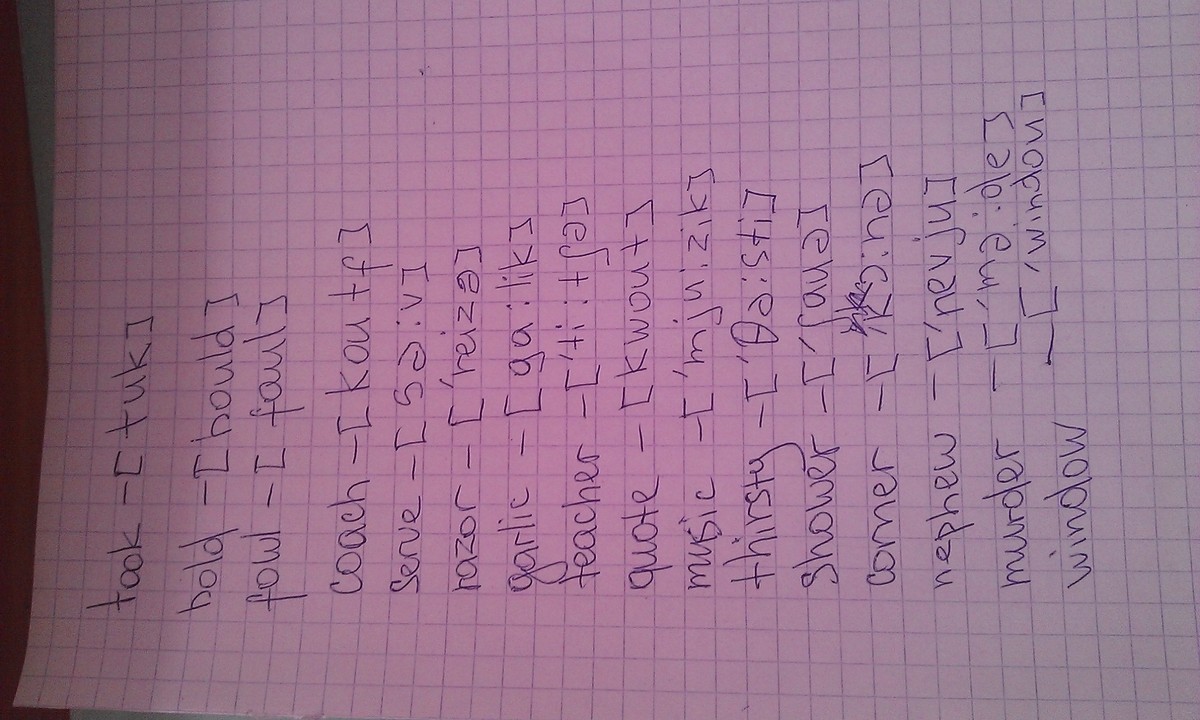 took - [tuk]
hold - [hould]
fowl - [faul]
coach - [koutʃ]
serve - [sə:v]
razor - ['reizə]
garlic - [ga:lik]
teacher - ['ti:tʃə]
quote - [kwout]
music - ['mju:zik]
thirsty - ['θə:sti]
shower - ['ʃauə]
corner - ['kɔ:nə]
nephew - ['nevju]
murder - ['mə:də]
window - ['windou]